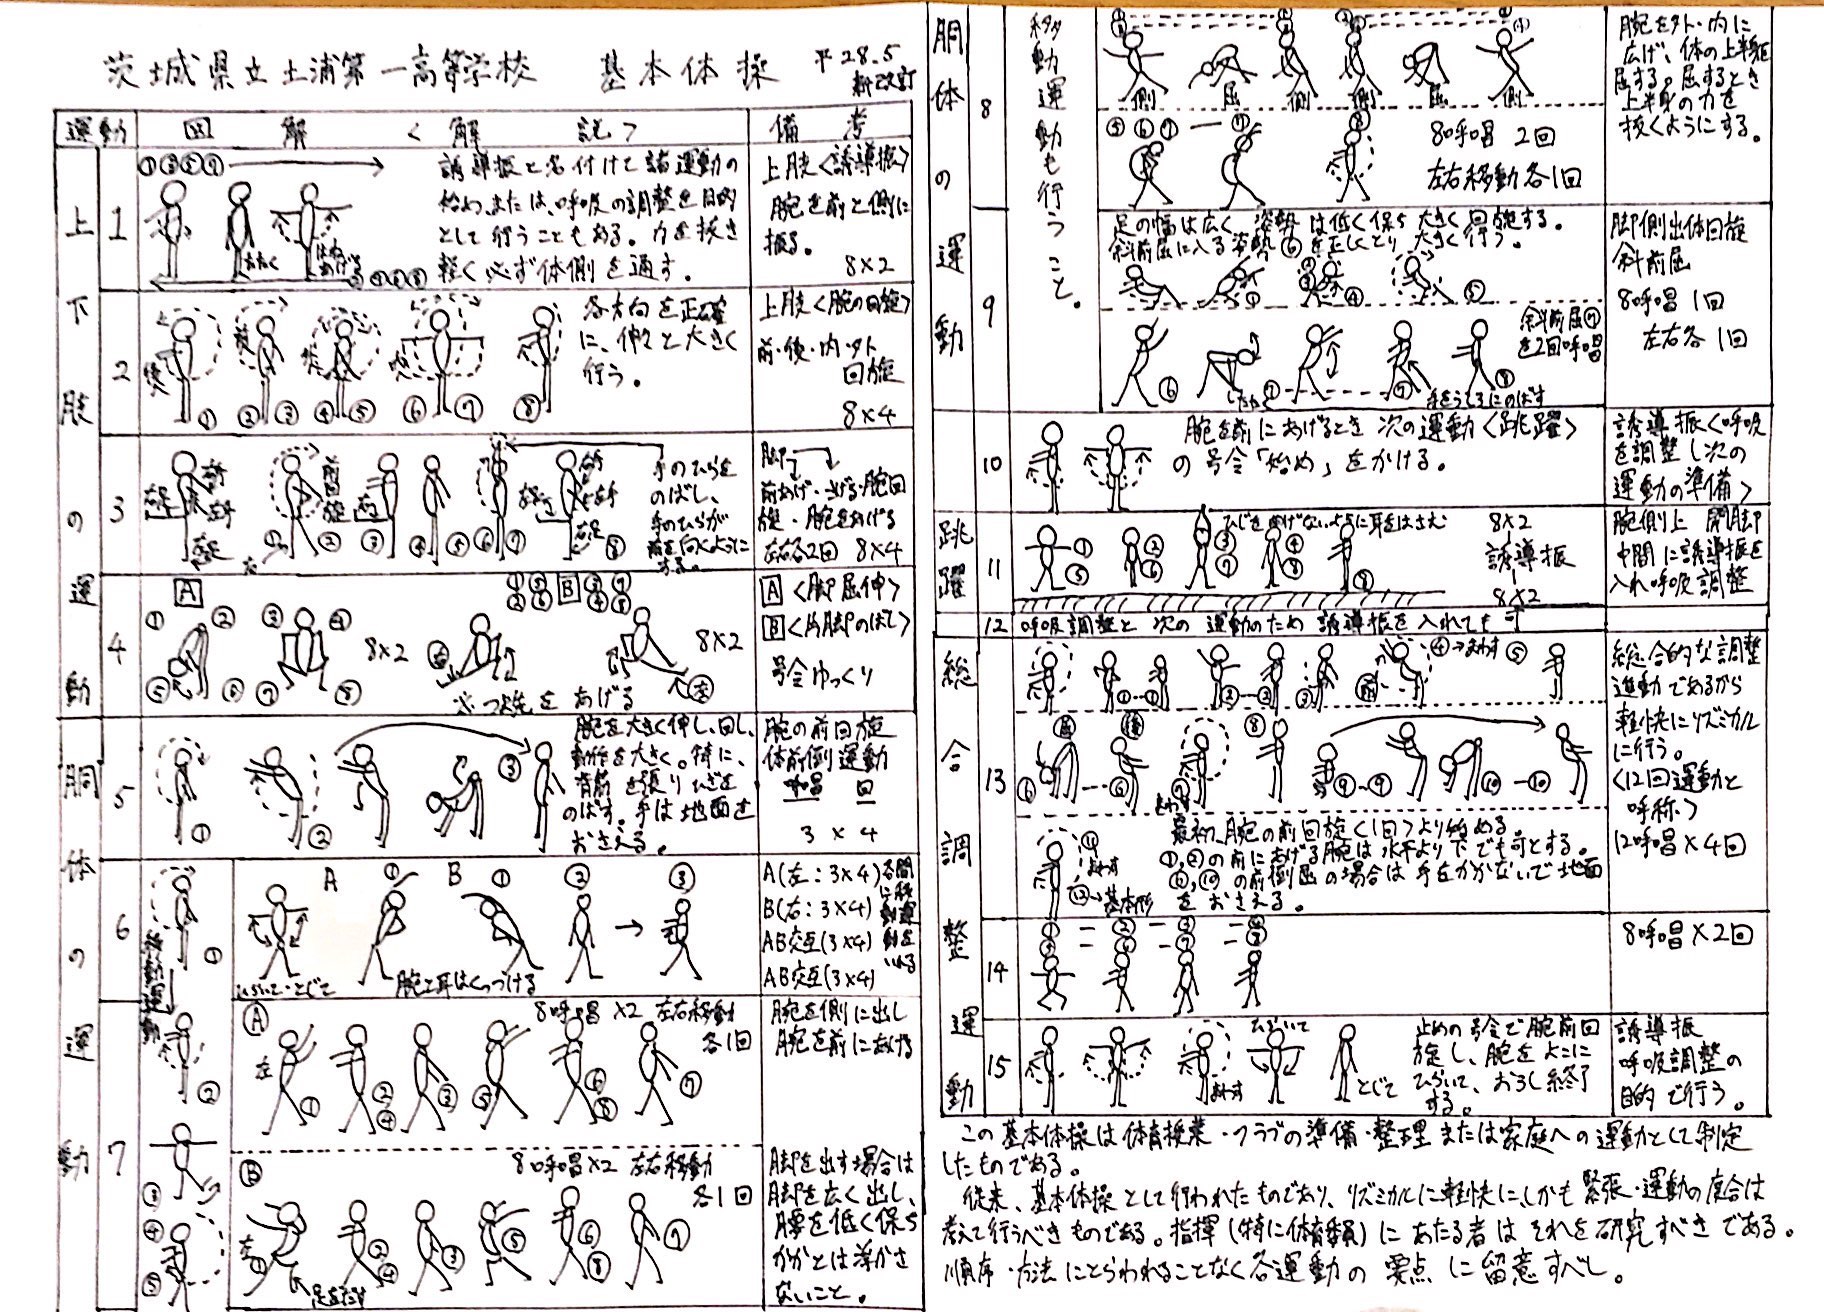 茨城県立土浦第一高等学校 基本体操 平28.5
新改訂
運動 図解<解説> 備考
上下肢の運動
1
①③⑤⑦
誘導振と名付けて諸運動の
始め、または、呼吸の調整を目的
として行うこともある。力を抜き
軽く必ず体側を通す。
上肢<誘導振>
腕を前と側に
振る。
8×2
2
① ②③ ④⑤ ⑥⑦ ⑧
各方向を正確
に、伸々と大きく
行う。
上肢<腕の回旋>
前・後・内・外
回旋
8×4
3
手のひらを
のばし、
手のひらが
前を向くように
する。
脚
前あげ・さげる・腕回
旋・腕をあげる
左右各2回 8×4
4
A
① ② ③ ④
⑤ ⑥ ⑦ ⑧
8×2
B
つま先をあげる
8×2
A<脚屈伸>
B<片脚のばし>
号令ゆっくり
胴体の運動
5
① ② ③
腕を大きく伸し、回し、
動作を大きく。特に、
背筋を張りひざを
のばす。手は地面を
おさえる。
腕の前回旋
体前倒運動
呼唱 回
3 × 4
6
移動運動
① ②
A ① B ① ② ③
ひらいて・とじて
腕と耳はくっつける
A(左:3×4)
B(右:3×4)
AB交互(3×4)
AB交互(3×4)
各間に移動運動をいれる
7
③ ④ ⑤
A
8呼唱×2 左右移動
各1回
左 ① ②④ ③ ⑤ ⑥⑧ ⑦
腕を側に出し
腕を前にあげる
B
8呼唱×2 左右移動
各1回
②④ ③ ⑤ ⑥⑧ ⑦
脚を出す場合は
脚を広く出し、
腰を低く保ち
かかとは浮かさ
ないこと。
胴体の運動
移動運動も行うこと。
8
側 屈 側 側 屈 側
⑤⑥⑦ ⑧
8呼唱 2回
左右移動各1回
腕を外・内に
広げ、体の上半身を
屈する。屈するとき
上半身の力を
抜くようにする。
9
足の幅は広く、姿勢は低く保ち大きく回旋する。
斜前屈に入る姿勢⑥を正しくとり、大きく行う。
斜前屈⑦
を2回呼唱
手をうしろにのばす
脚側出体回旋
斜前屈
8呼唱 1回
左右各 1回
10
腕を前にあげるとき次の運動<跳躍>
の号令「始め」をかける。
誘導振<呼吸
を調整し次の
運動の準備>
跳躍
11
ひじをまげないように耳をはさむ
①⑤ ②⑥ ③⑦ ④⑧
8×2
誘導振
8×2
腕側上 開閉脚
中間に誘導振を
入れ呼吸調整
12 呼吸調整と次の運動のため誘導振を入れても可
総合調整運動
13
④→まわす ⑤
最初、腕の前回旋<1回>より始める
①,②の前にあげる腕は水平より下でも可とする。
の前倒屈の場合は手をつかないで地面
をおさえる。
⑪
まわす
⑫→基本形
総合的な調整
運動であるから
軽快にリズミカル
に行う。
<12回運動と
呼称>
12呼唱×4回
14
8呼唱×2回
15
まわす ひらいて とじて
止めの号令で腕前回
旋し、腕をよこに
ひらいて、おろし終了
する。
誘導振
呼吸調整の
目的で行う。
この基本体操は体育授業・クラブの準備・整理または家庭への運動として制定
したものである。
従来、基本体操として行われたものであり、リズミカルに軽快に、しかも緊張・運動の度合は
考えて行うべきものである。指揮(特に体育委員)にあたる者はそれを研究すべきである。
順序・方法にとらわれることなく各運動の要点に留意すべし。